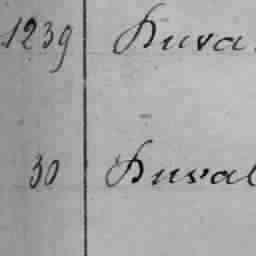 1239 Duva
30 Duval